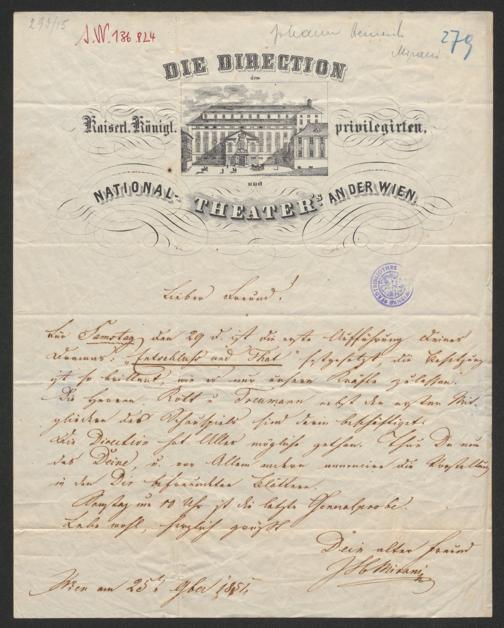 293/15
J.N. 136.824
Johann
Mirani
279
DIE DIRECTION
des
Kaiserl. Königl. privilegirten,
und
NATIONAL- THEATER's AN DER WIEN.
Lieber Freund!
Für Samstag den 29 d. ist die erste Aufführung Deines
Dramas: "Entschluss und That" festgesetzt, die Besetzung
ist so brillant, wie es nur unsere Kräfte zulassen.
Die Herren Rott u nebst den ersten Mit-
gliedern des Schauspiels sind darin beschäftiget.
Die Direction hat Alles mögliche gethan. Thue Du nun
das Deine, u. vor Allem die Vorstellung
in den Dir befreundeten Blättern.
Samstag um 10 Uhr ist die letzte Generalprobe.
Lebe wohl, herzlich grüßt
Dein alter Freund
JH Mirani
Wien am 25t 9ber